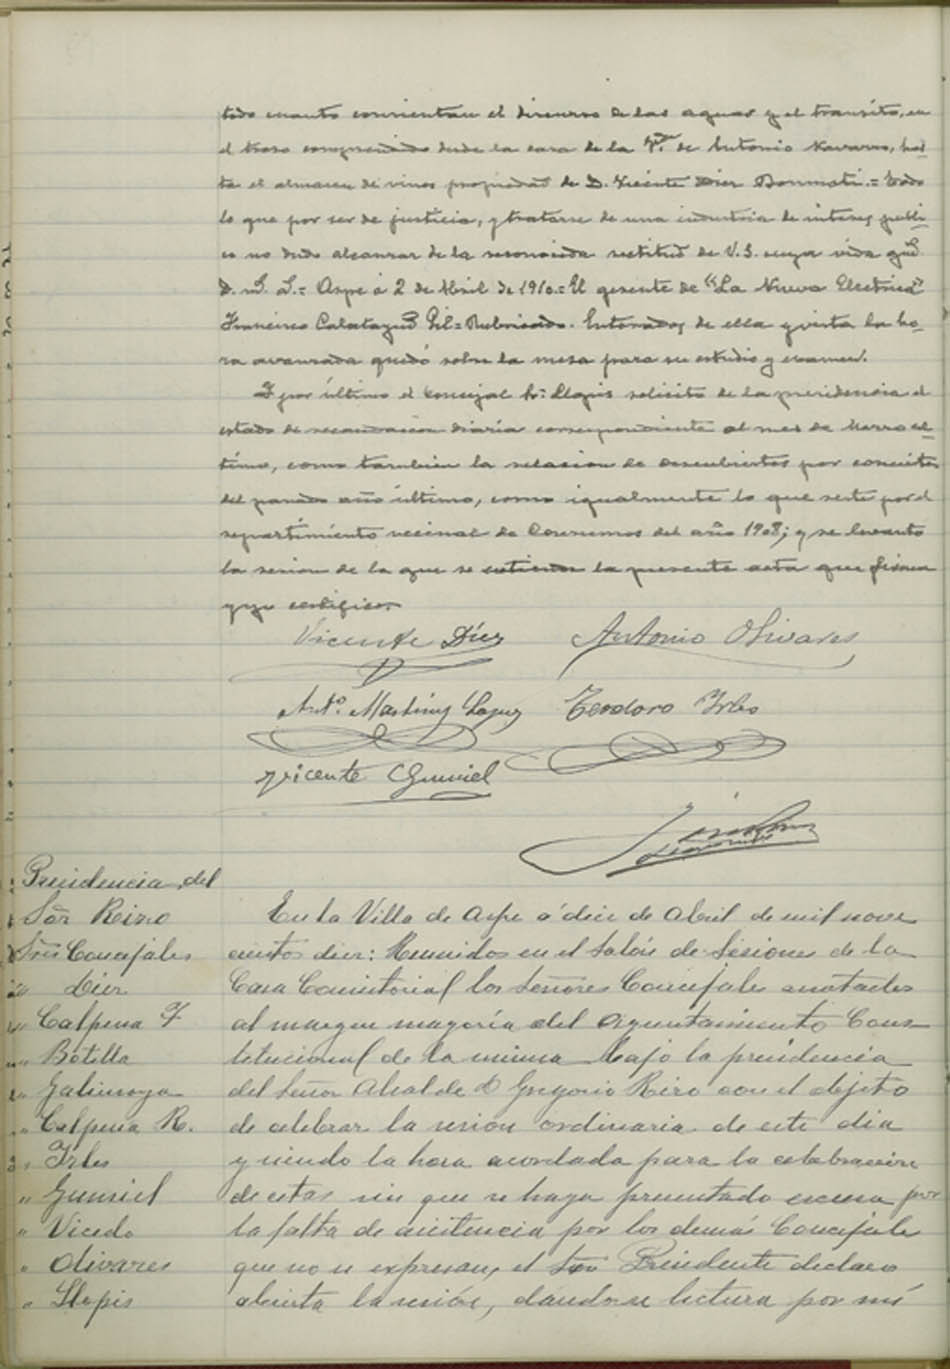 todo cuanto consientan el discurso de las aguas y el transito, en
el trozo comprendido desde la casa de la V.da de Antonio Navarro, has-
ta el almacen de vinos propiedad de D. Vicente Diez Bonmati.= Todo
lo que por ser de justicia, y tratarse de una industria de interes publi-
co no dudo alcanzar de la reconocida rectitud de V.S. cuya vida gue
D. m. S. S.= Aspe á 2 de Abril de 1910.= El gerente de "La Nueva Electrica"
Francisco Calatayud Gil= Rubricado. Enterados de ella y vista la ho-
ra avanzada quedó sobre la mesa para su estudio y examen.
Y por último el Concejal Sr. Llopis solicitó de la presidencia el
estado de recaudacion diaria correspondiente al mes de Marzo úl-
timo, como tambien la relacion de descubiertos por conciertos
del pasado año último, como igualmente lo que reste por el
repartimiento vecinal de Consumos del año 1908; y se levanto
la sesion de la que se extiende la presente acta que firman
y yo certifico.
Vicente Díez Antonio Olivares
Ant.º Martinez Lopez Teodoro Yrles
Vicente Gumiel
Presidencia del
Sôr Rizo
Sres Concejales
Diez
" Calpena F
" Botella
" Galinsoga
" Calpena R.
" Yrles
" Gumiel
" Vicedo
" Olivares
" Llopis
En la Villa de Aspe á diez de Abril de mil nove
cientos diez: Reunidos en el Salón de Sesiones de la
Casa Consistorial los Señores Concejales anotados
al margen mayoría del Ayuntamiento Cons-
titucional de la misma bajo la presidencia
del Señor Alcalde D Gregorio Rizo con el objeto
de celebrar la sesion ordinaria de este dia
y siendo la hora acordada para la celebración
de estas sin que se haya presentado excusa por
la falta de asistencia por los demás Concejales
que no se expresan, el Sôr Presidente declaro
abierta la sesión, dandose lectura por mi